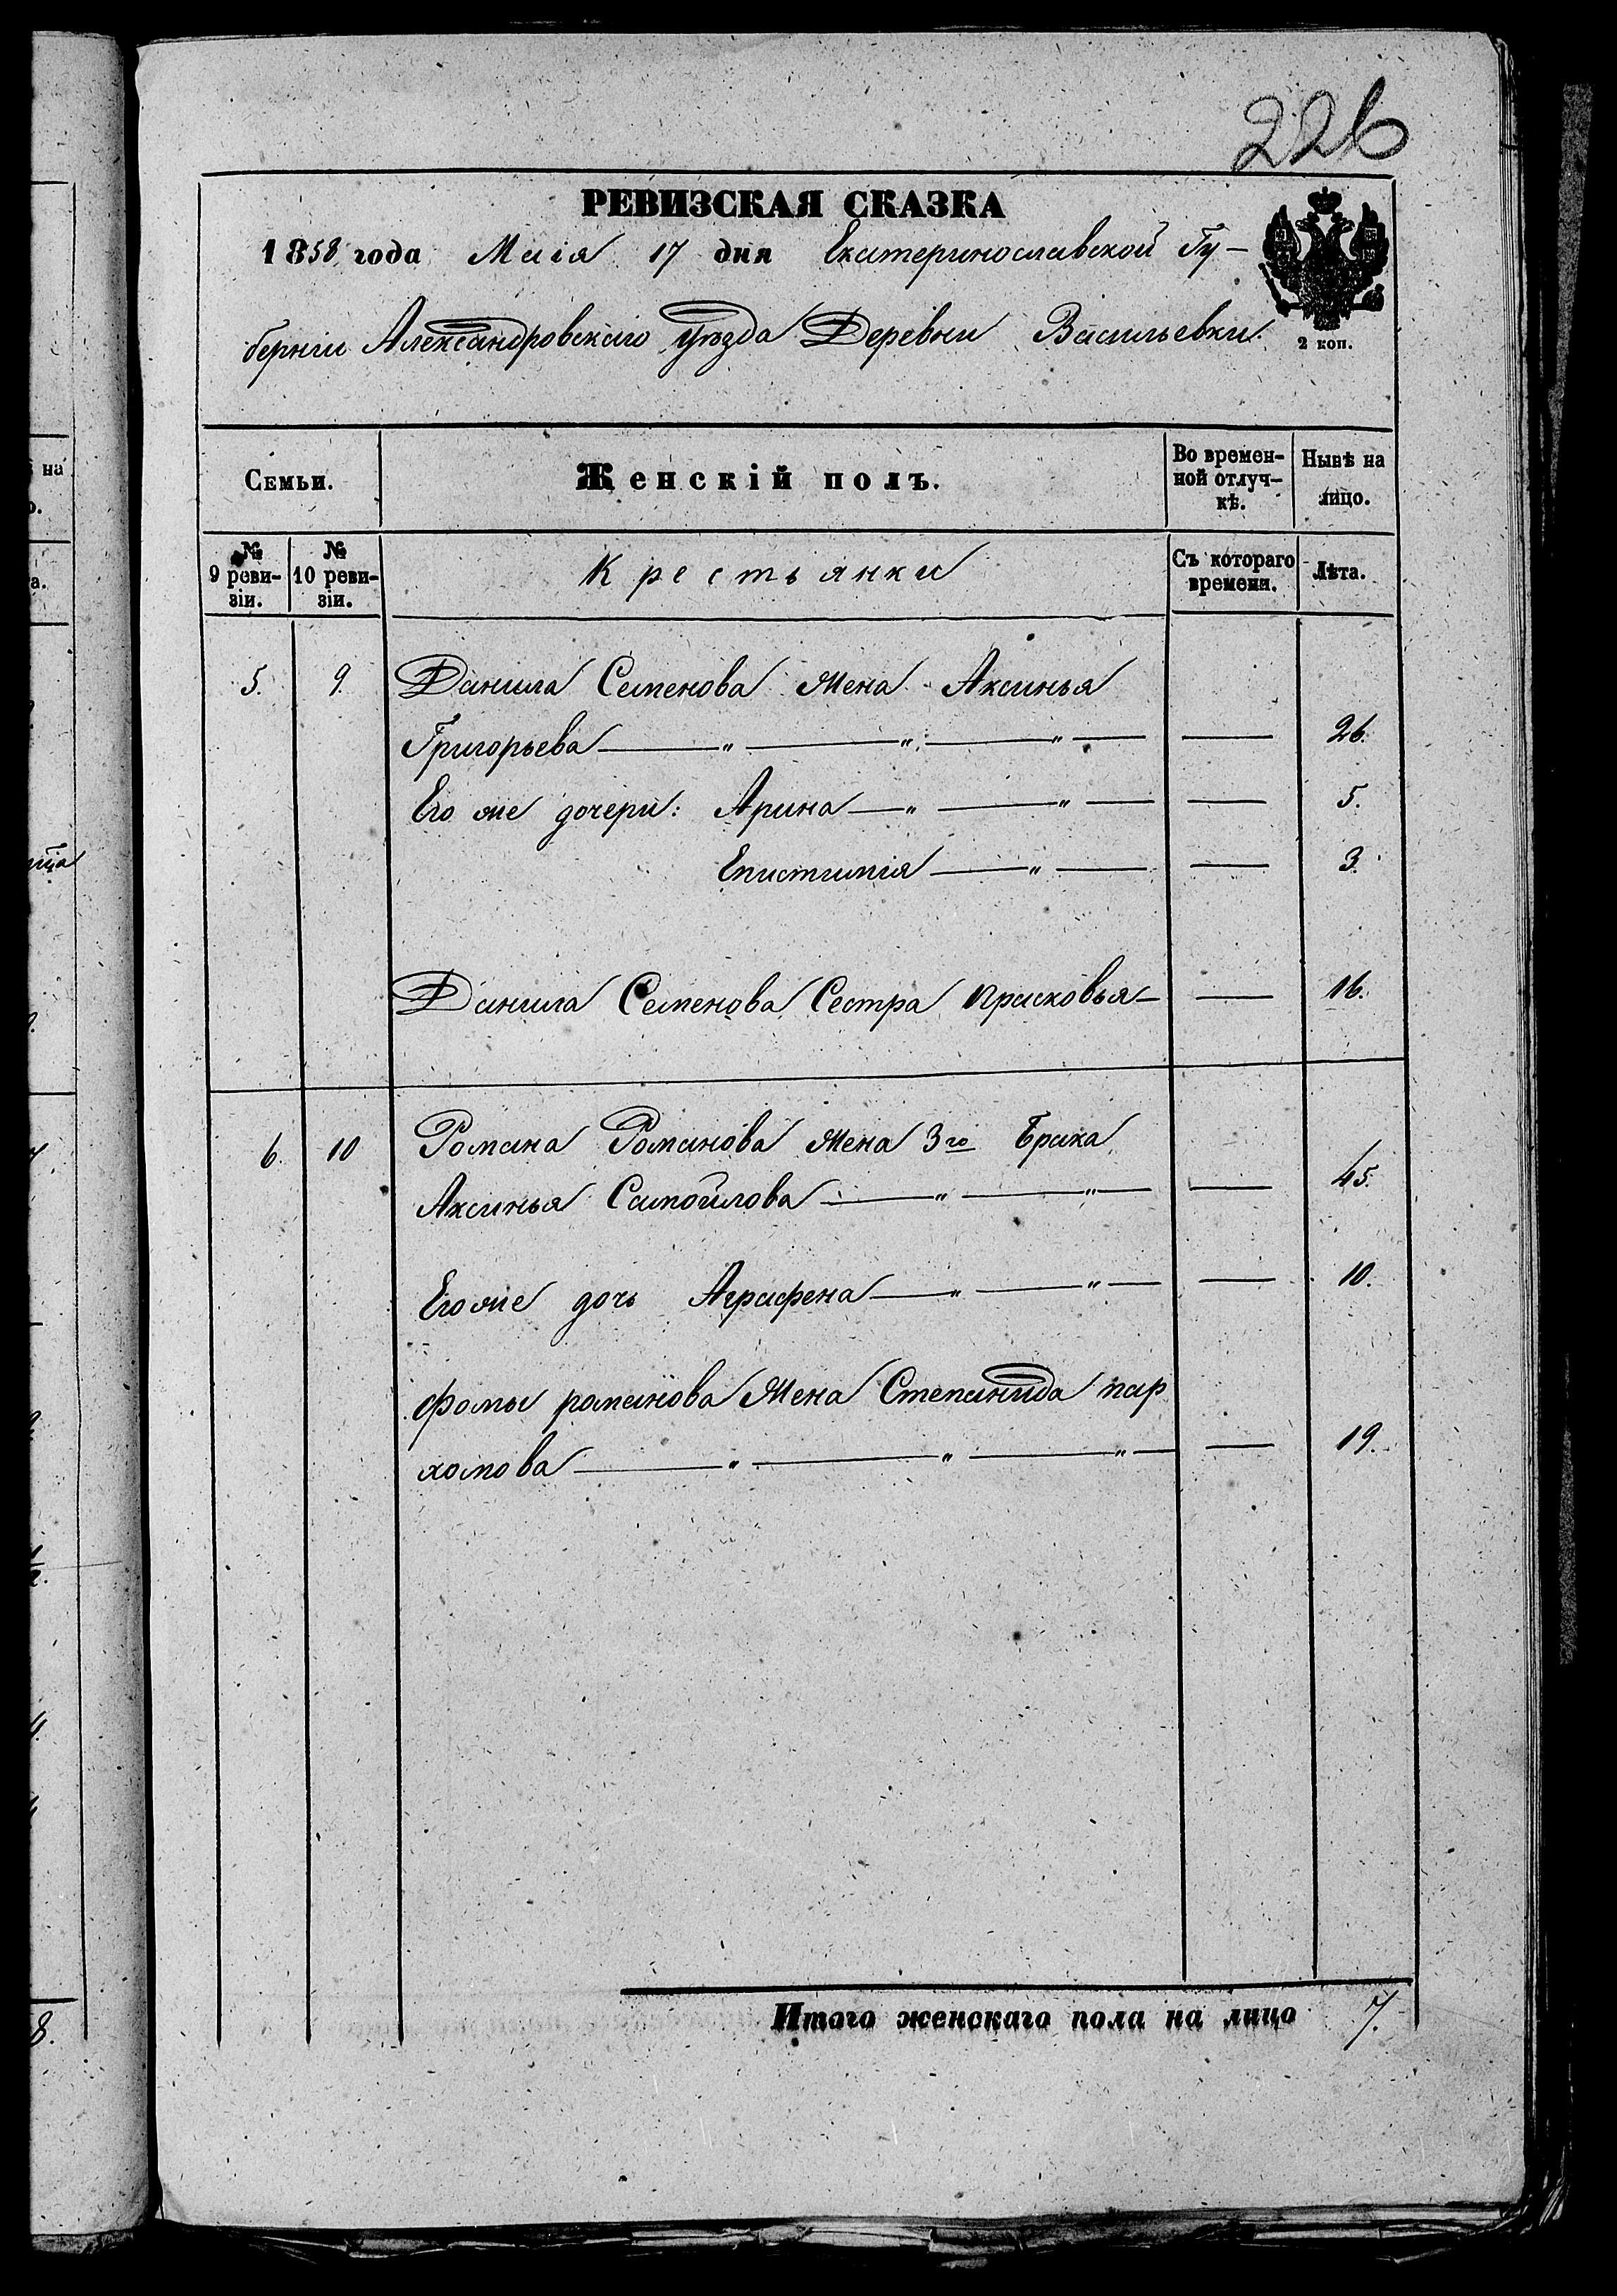 226
РЕВИЗСКАЯ СКАЗКА
1858 года Маія 17 дня Екатеринославской Гу-
берніи Александровскаго уѣзда Деревни Васильевки.
2 коп.
Семьи. Женскій полъ. Во времен-ной отлуч-кѣ. Нынѣ на лицо.
№ 9 реви-зіи. № 10 реви-зіи. Крестьянки Съ котораго времени. Лѣта.
5. 9. Данила Семенова жена Аксинья
Григорьева — " — " — " — — 26.
Его же дочери: Арина — " — " — — 5.
Епистимія — " — — 3.
Данила Семенова Сестра Прасковья — — 16.
6. 10 Романа Романова жена 3го брака
Аксинья Самойлова — " — " — — 45.
Его же дочь Аграфена — " — " — — 10.
Фомы романова жена Степанида пар
хомова — " — " — " — — 19.
Итого женскаго пола на лицо 7.
на
8.